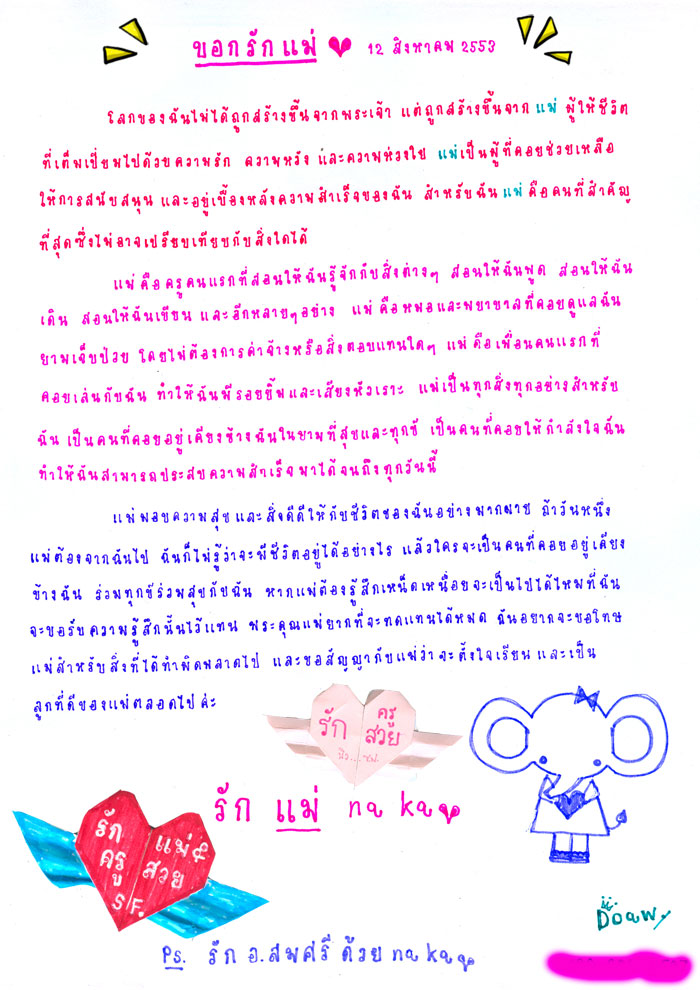 บอกรักแม่ 12 สิงหาคม 2553
โลกของฉันไม่ได้ถูกสร้างขึ้นจากพระเจ้า แต่ถูกสร้างขึ้นจาก แม่ ผู้ให้ชีวิต
ที่เต็มเปี่ยมไปด้วยความรัก ความหวัง และความห่วงใย แม่เป็นผู้ที่คอยช่วยเหลือ
ให้การสนับสนุน และอยู่เบื้องหลังความสำเร็จของฉัน สำหรับฉัน แม่ คือคนที่สำคัญ
ที่สุดซึ่งไม่อาจเปรียบเทียบกับสิ่งใดได้
แม่ คือครูคนแรกที่สอนให้ฉันรู้จักกับสิ่งต่างๆ สอนให้ฉันพูด สอนให้ฉัน
เดิน สอนให้ฉันเขียน และอีกหลายๆอย่าง แม่ คือหมอและพยาบาลที่คอยดูแลฉัน
ยามเจ็บป่วย โดยไม่ต้องการค่าจ้างหรือสิ่งตอบแทนใดๆ แม่ คือเพื่อนคนแรกที่
คอยเล่นกับฉัน ทำให้ฉันมีรอยยิ้มและเสียงหัวเราะ แม่เป็นทุกสิ่งทุกอย่างสำหรับ
ฉัน เป็นคนที่คอยอยู่เคียงข้างฉันในยามที่สุขและทุกข์ เป็นคนที่คอยให้กำลังใจฉัน
ทำให้ฉันสามารถประสบความสำเร็จมาได้จนถึงทุกวันนี้
แม่มอบความสุขและสิ่งดีดีให้กับชีวิตของฉันอย่างมากมาย ถ้าวันหนึ่ง
แม่ต้องจากฉันไป ฉันก็ไม่รู้ว่าจะมีชีวิตอยู่ได้อย่างไร แล้วใครจะเป็นคนที่คอยอยู่เคียง
ข้างฉัน ร่วมทุกข์ร่วมสุขกับฉัน หากแม่ต้องรู้สึกเหน็ดเหนื่อยจะเป็นไปได้ไหมที่ฉัน
จะขอรับความรู้สึกนั้นไว้แทน พระคุณแม่ยากที่จะทดแทนได้หมด ฉันอยากจะขอโทษ
แม่สำหรับสิ่งที่ได้ทำผิดพลาดไป และขอสัญญากับแม่ว่าจะตั้งใจเรียน และเป็น
ลูกที่ดีของแม่ตลอดไปค่ะ
รัก ครู
สวย
รัก แม่ na ka
รัก แม่&
ครู สวย
S/F.
Doaw
Ps. รัก อ.สมศรี ด้วย na ka